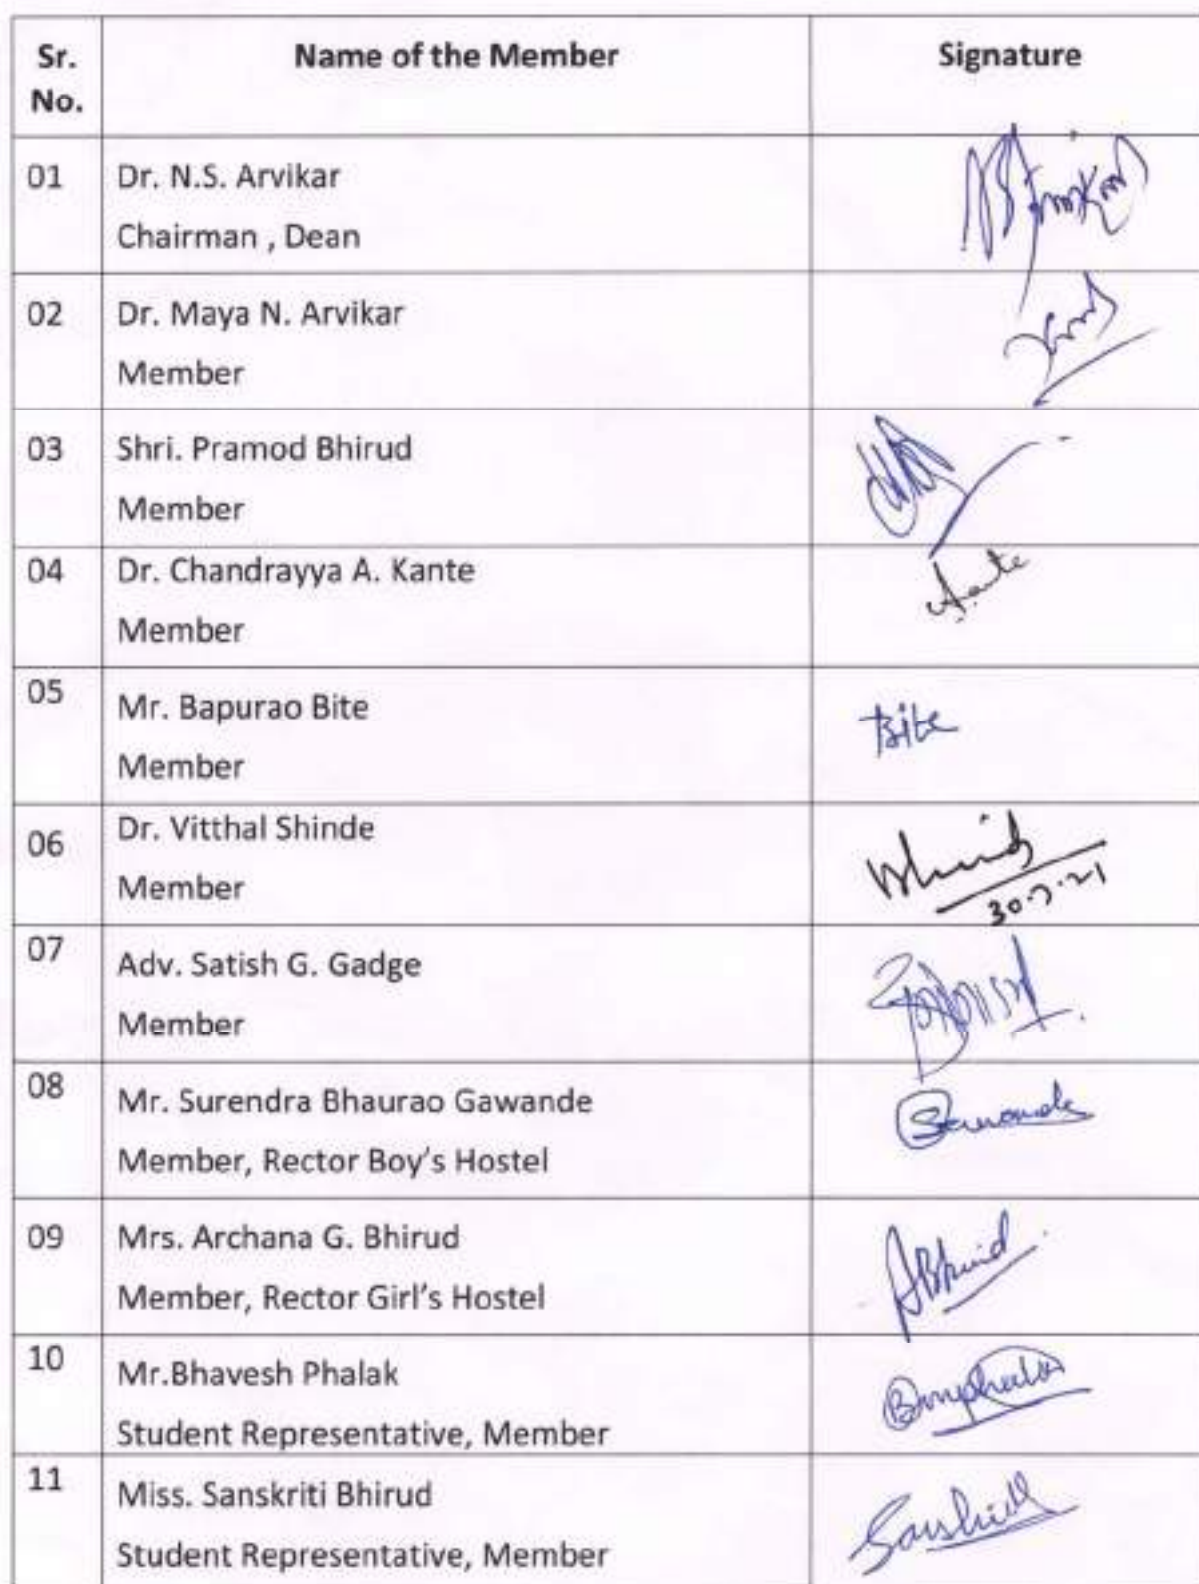 Sr. No.
Name of the Member
Signature
01
Dr. N.S. Arvikar
Chairman , Dean
02
Dr. Maya N. Arvikar
Member
03
Shri. Pramod Bhirud
Member
04
Dr. Chandrayya A. Kante
Member
Kante
05
Mr. Bapurao Bite
Member
Bite
06
Dr. Vitthal Shinde
Member
30.7.21
07
Adv. Satish G. Gadge
Member
08
Mr. Surendra Bhaurao Gawande
Member, Rector Boy's Hostel
09
Mrs. Archana G. Bhirud
Member, Rector Girl's Hostel
ABhirud
10
Mr.Bhavesh Phalak
Student Representative, Member
11
Miss. Sanskriti Bhirud
Student Representative, Member